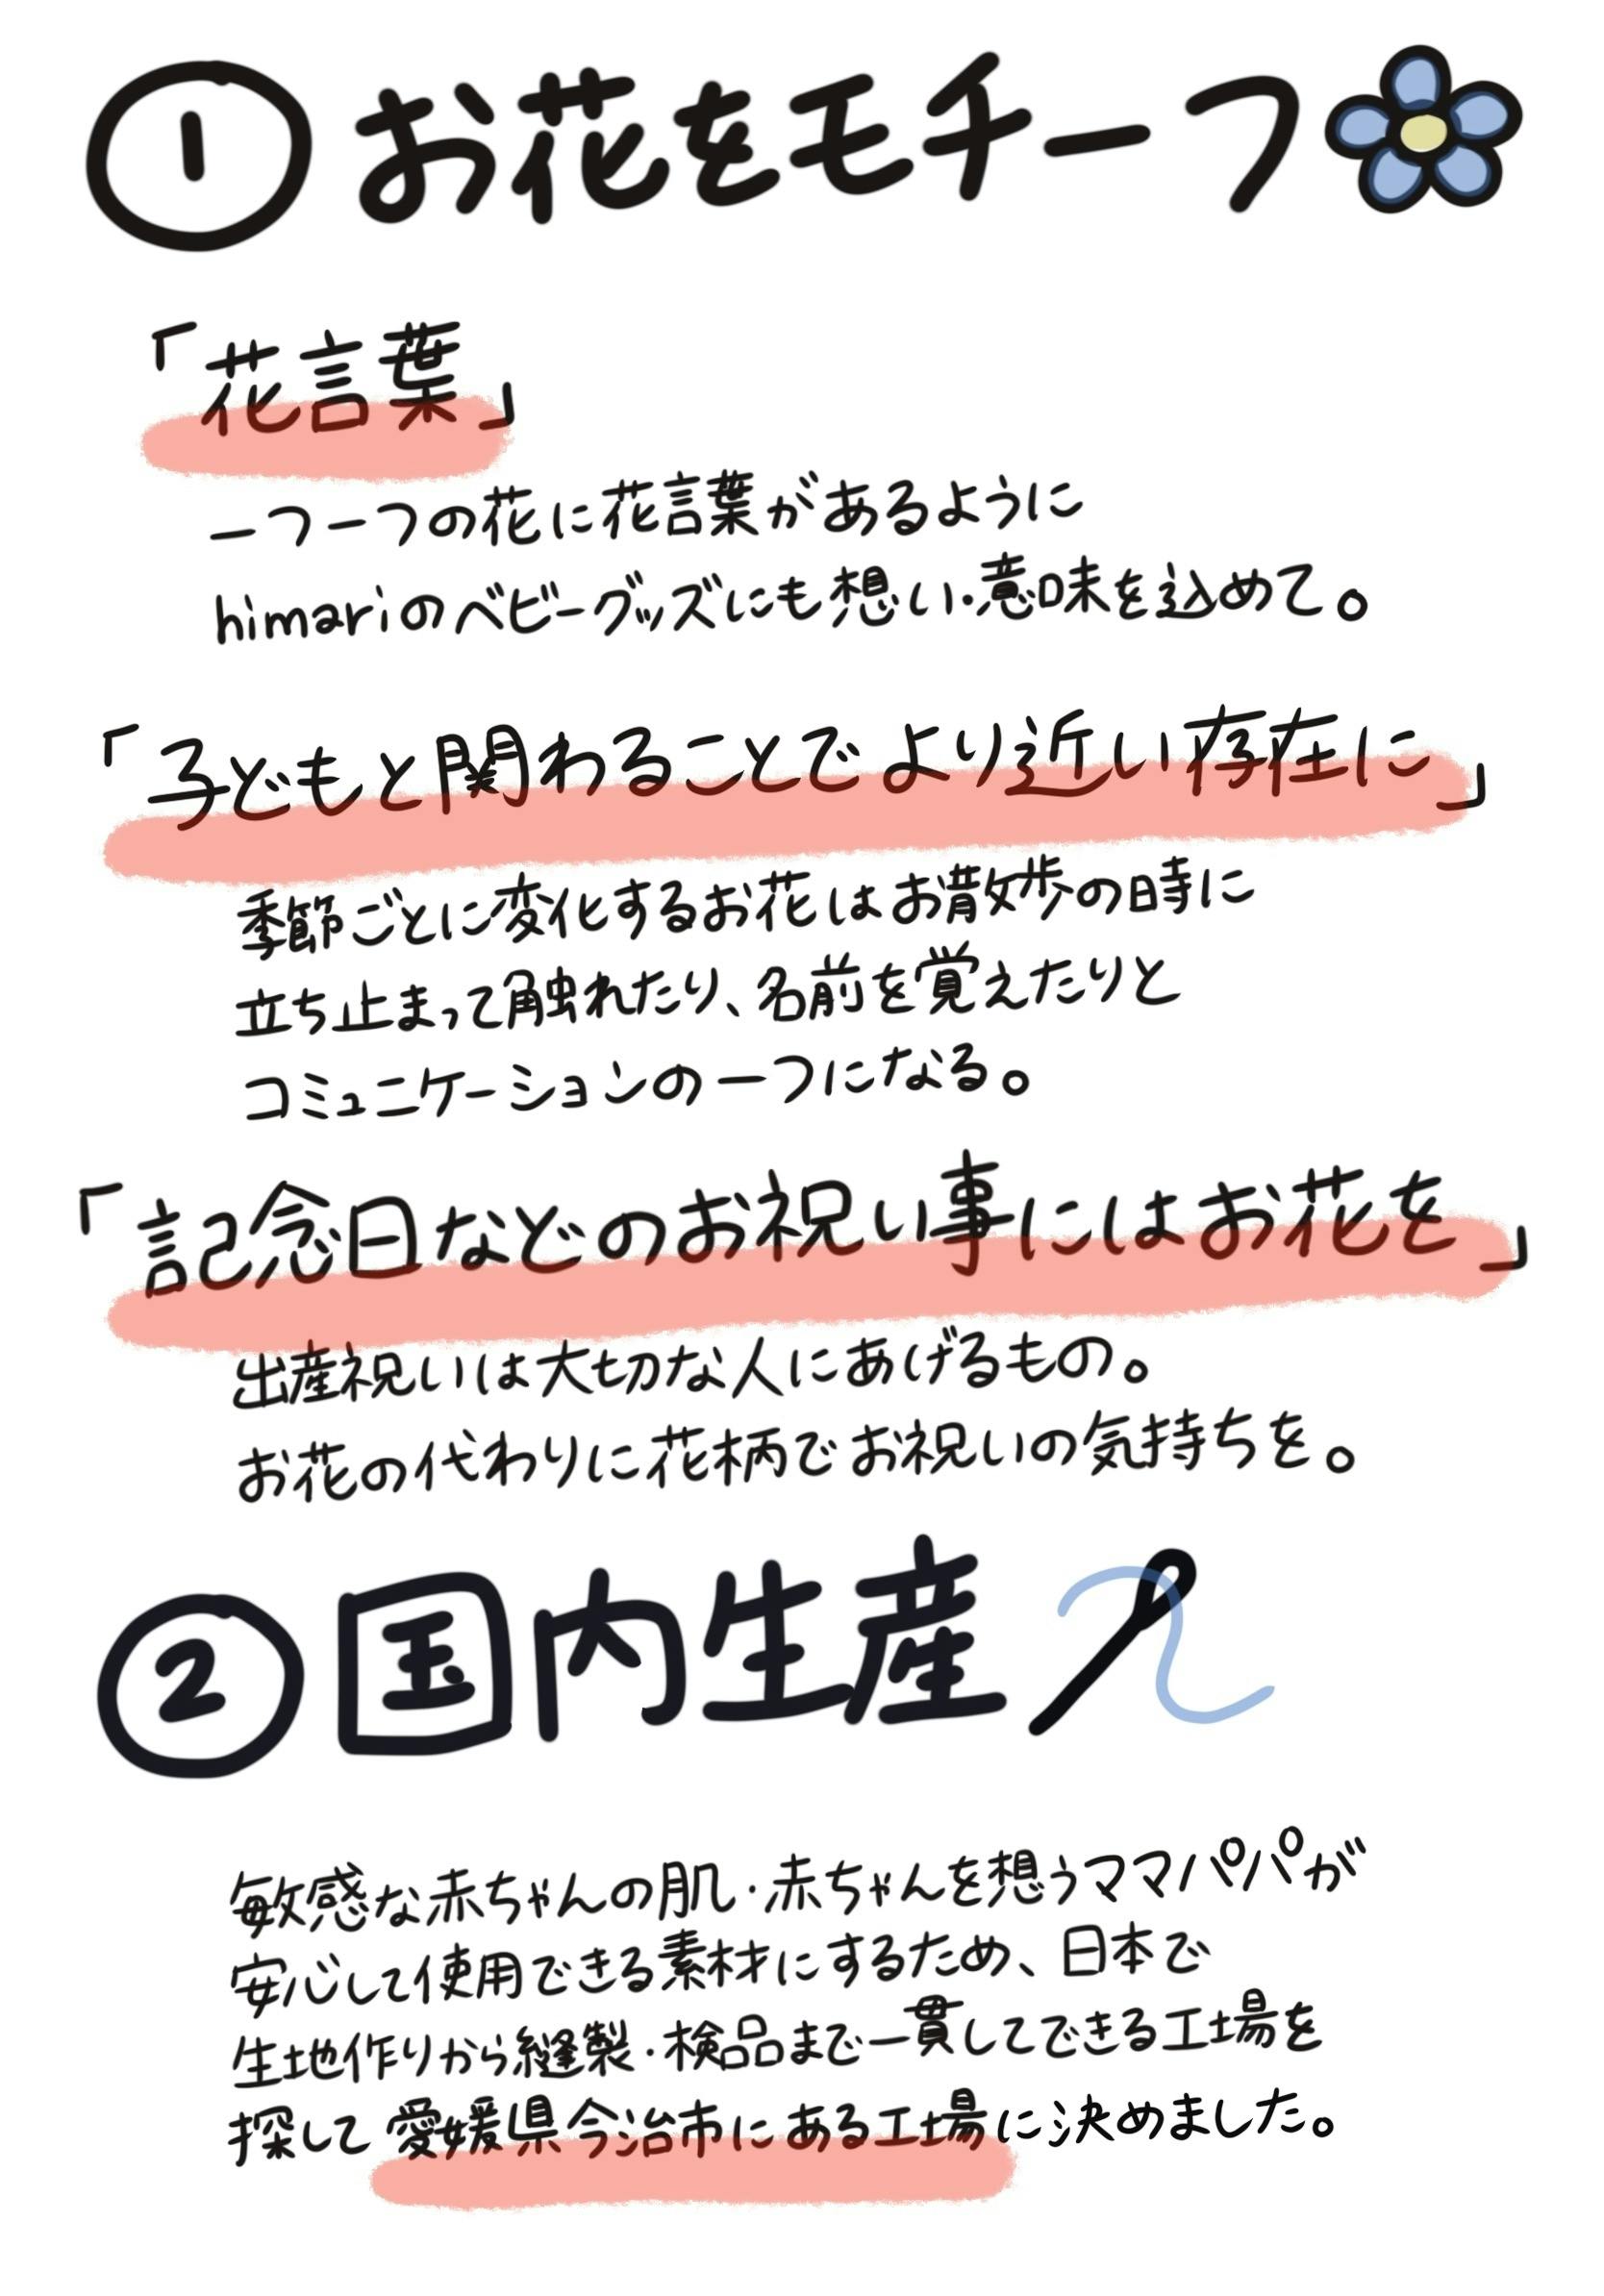 ① お花をモチーフ
「花言葉」
一つ一つの花に花言葉があるように
himariのベビーグッズにも想い・意味を込めて。
「子どもと関わることでより近い存在に」
季節ごとに変化するお花はお散歩の時に
立ち止まって触れたり、名前を覚えたりと
コミュニケーションの一つになる。
「記念日などのお祝い事にはお花を」
出産祝いは大切な人にあげるもの。
お花の代わりに花柄でお祝いの気持ちを。
② 国内生産
敏感な赤ちゃんの肌・赤ちゃんを想うママパパが
安心して使用できる素材にするため、日本で
生地作りから縫製・検品まで一貫してできる工場を
探して愛媛県今治市にある工場に決めました。